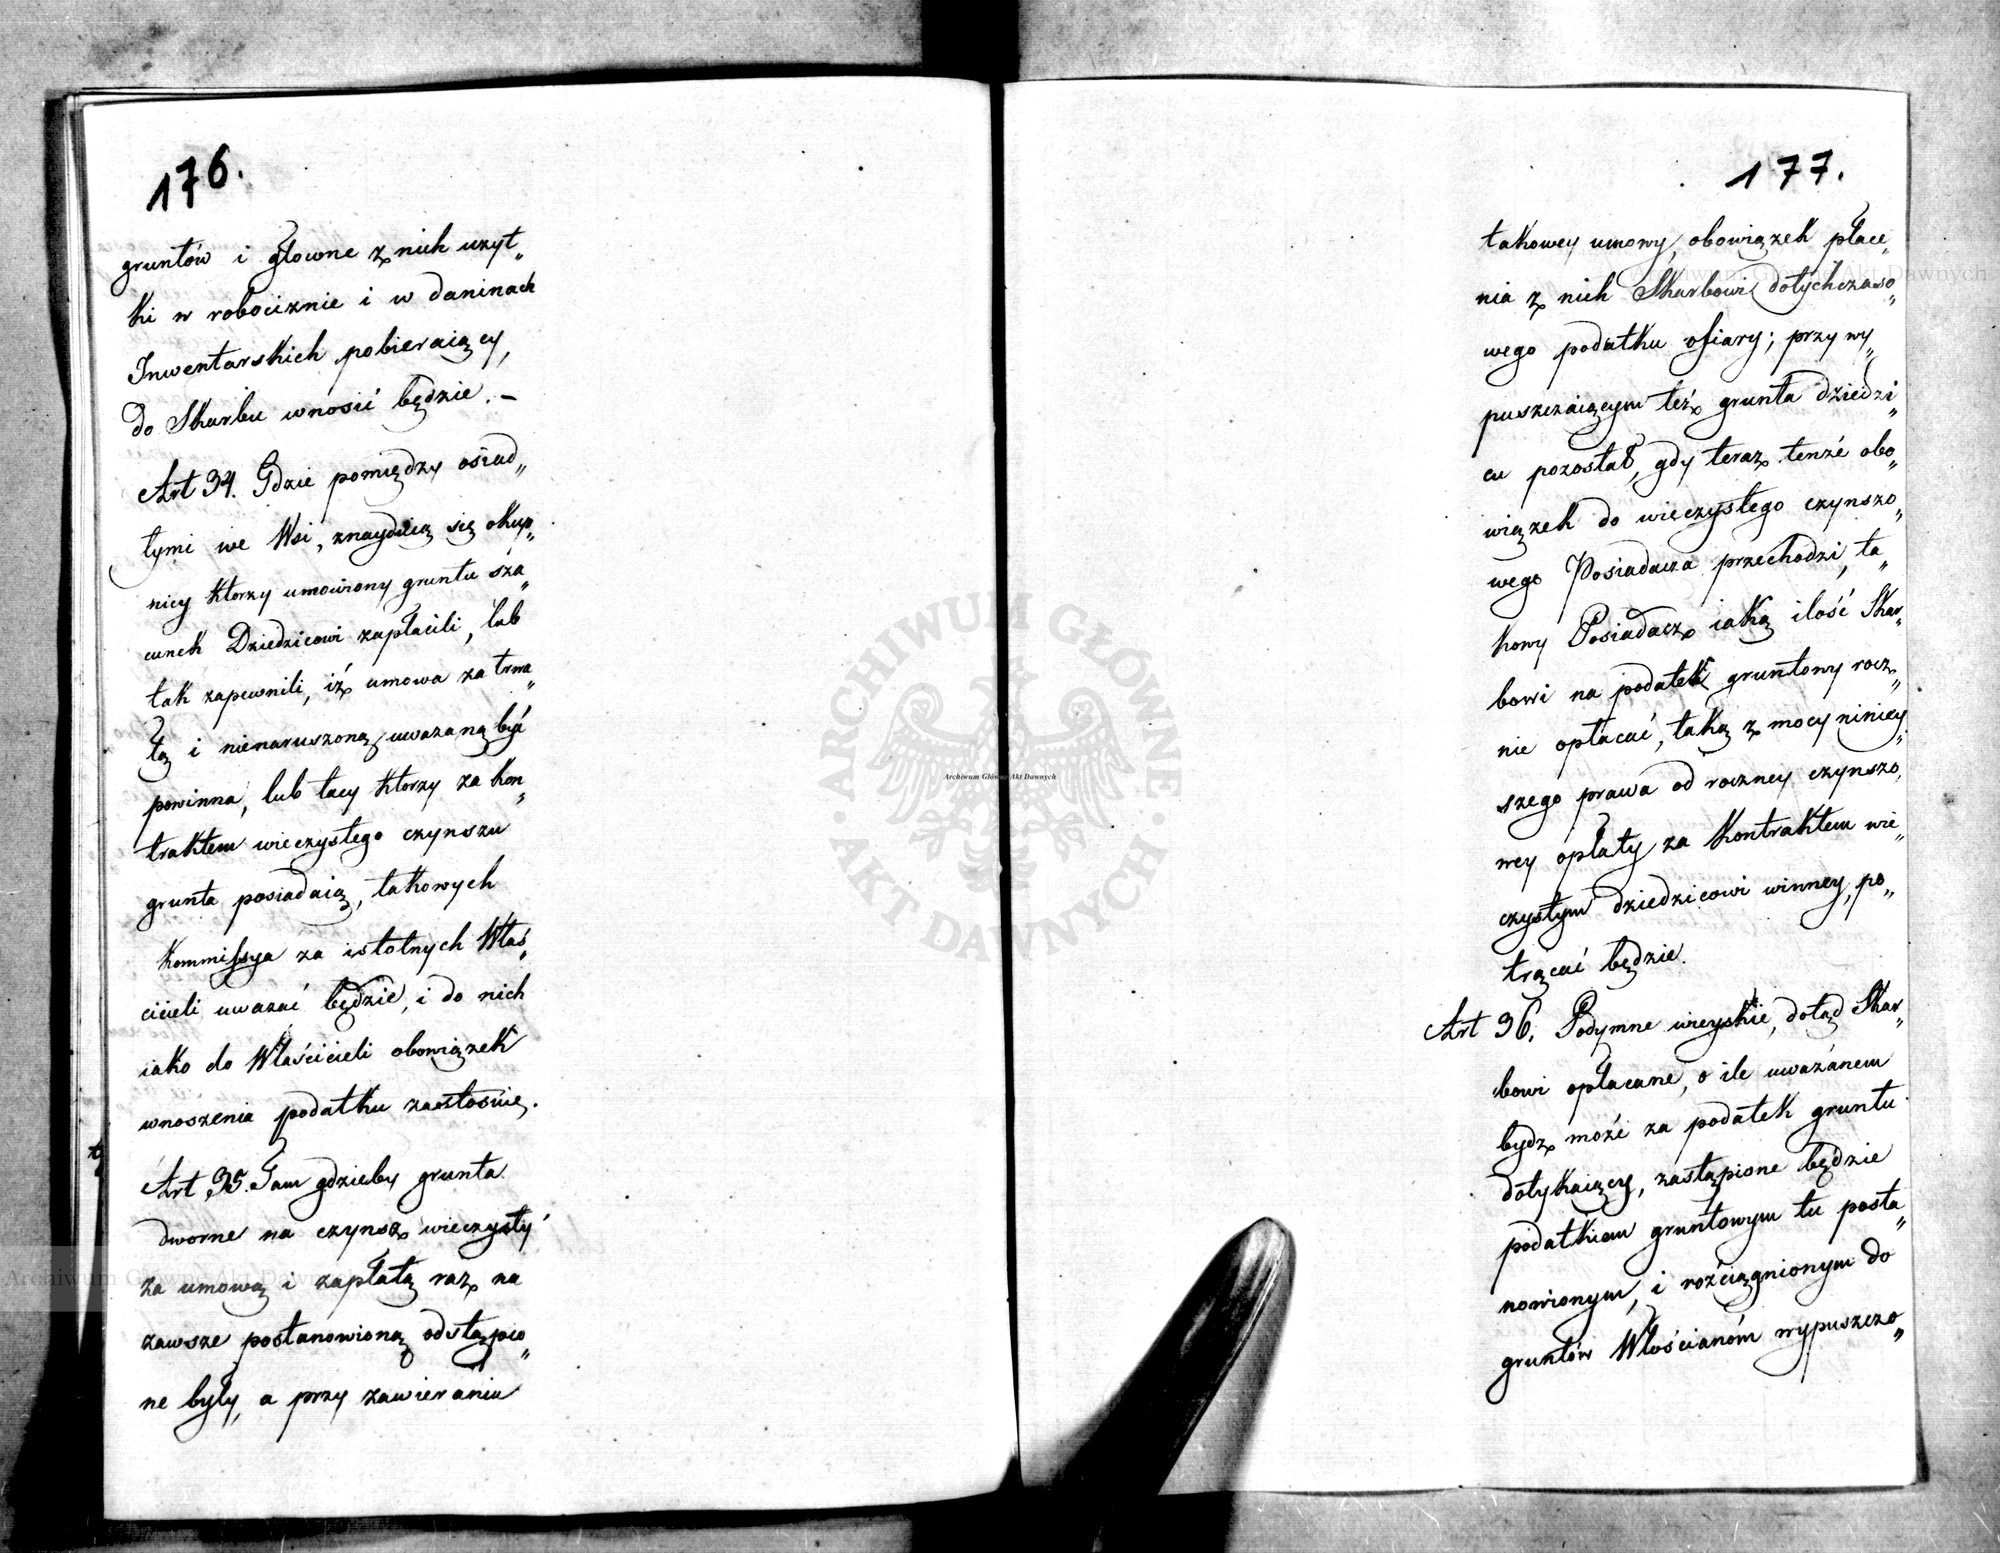 176.
gruntów i głowne z nich uzyt„
ki w robociznie i w daninach
Inwentarskich pobieraiący,
do Skarbu wnosić będzie. –
Art 34. Gdzie pomiędzy osiad„
łymi we Wsi, znayduią się okup„
nicy ktorzy umowiony gruntu sza„
cunek Dziedzicowi zapłacili, lub
tak zapewnili, iż umowa za trwa„
łą i nienaruszoną uwazaną być
powinna, lub tacy ktorzy za kon„
traktem wieczystego czynszu
grunta posiadaią, takowych
Kommissya za istotnych Właś„
cicieli uwazać będzie, i do nich
iako do Właścicieli obowiązek
wnoszenia podatku zastosuie.
Art 35. Tam gdzieby grunta
dworne na czynsz wieczysty
za umową i zapłatą raz na
zawsze postanowioną odstąpio„
ne były, a przy zawieraniu
177.
takowey umowy, obowiązek płace„
nia z nich Skarbowi dotychczaso„
wego podatku ofiary; przy wy„
puszczaiącym też grunta dziedzi„
cu pozostał, gdy teraz tenże obo„
wiązek do wieczystego czynszo„
wego Posiadacza przechodzi, ta„
kowy Posiadacz iaką ilość Skar„
bowi na podatek gruntowy rocz„
nie opłacać, taką z mocy niniey„
szego prawa od roczney czynszo„
wey opłaty za Kontraktem wie„
czystym dziedzicowi winney, po„
trącać będzie.
Art 36. Podymne wieyskie, dotąd Skar„
bowi opłacane, o ile uważanem
bydz może za podatek gruntu
dotykaiący, zastąpione będzie
podatkiem gruntowym tu posta„
nowionym, i rozciągnionym do
gruntów Włościanóm wypuszczo„
ARCHIWUM GŁÓWNE AKT DAWNYCH
Archiwum Główne Akt Dawnych
Archiwum Główne Akt Dawnych
Archiwum Główne Akt Dawnych